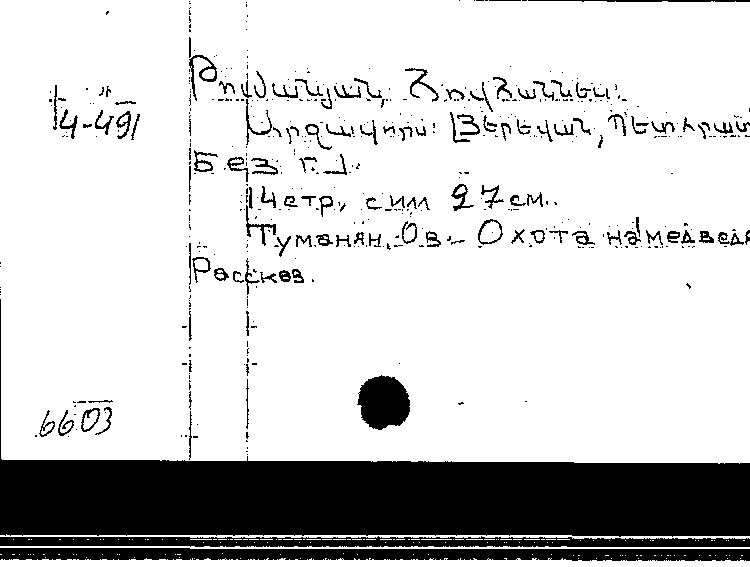 Թումանյան, Հովհաննես.
14-491
Արջավորս. [Յերեվան, Պետհրատ
Без г.].
14 стр, с илл 27 см.
Туманян, Ов. - Охота на медведя
Рассказ.
6603